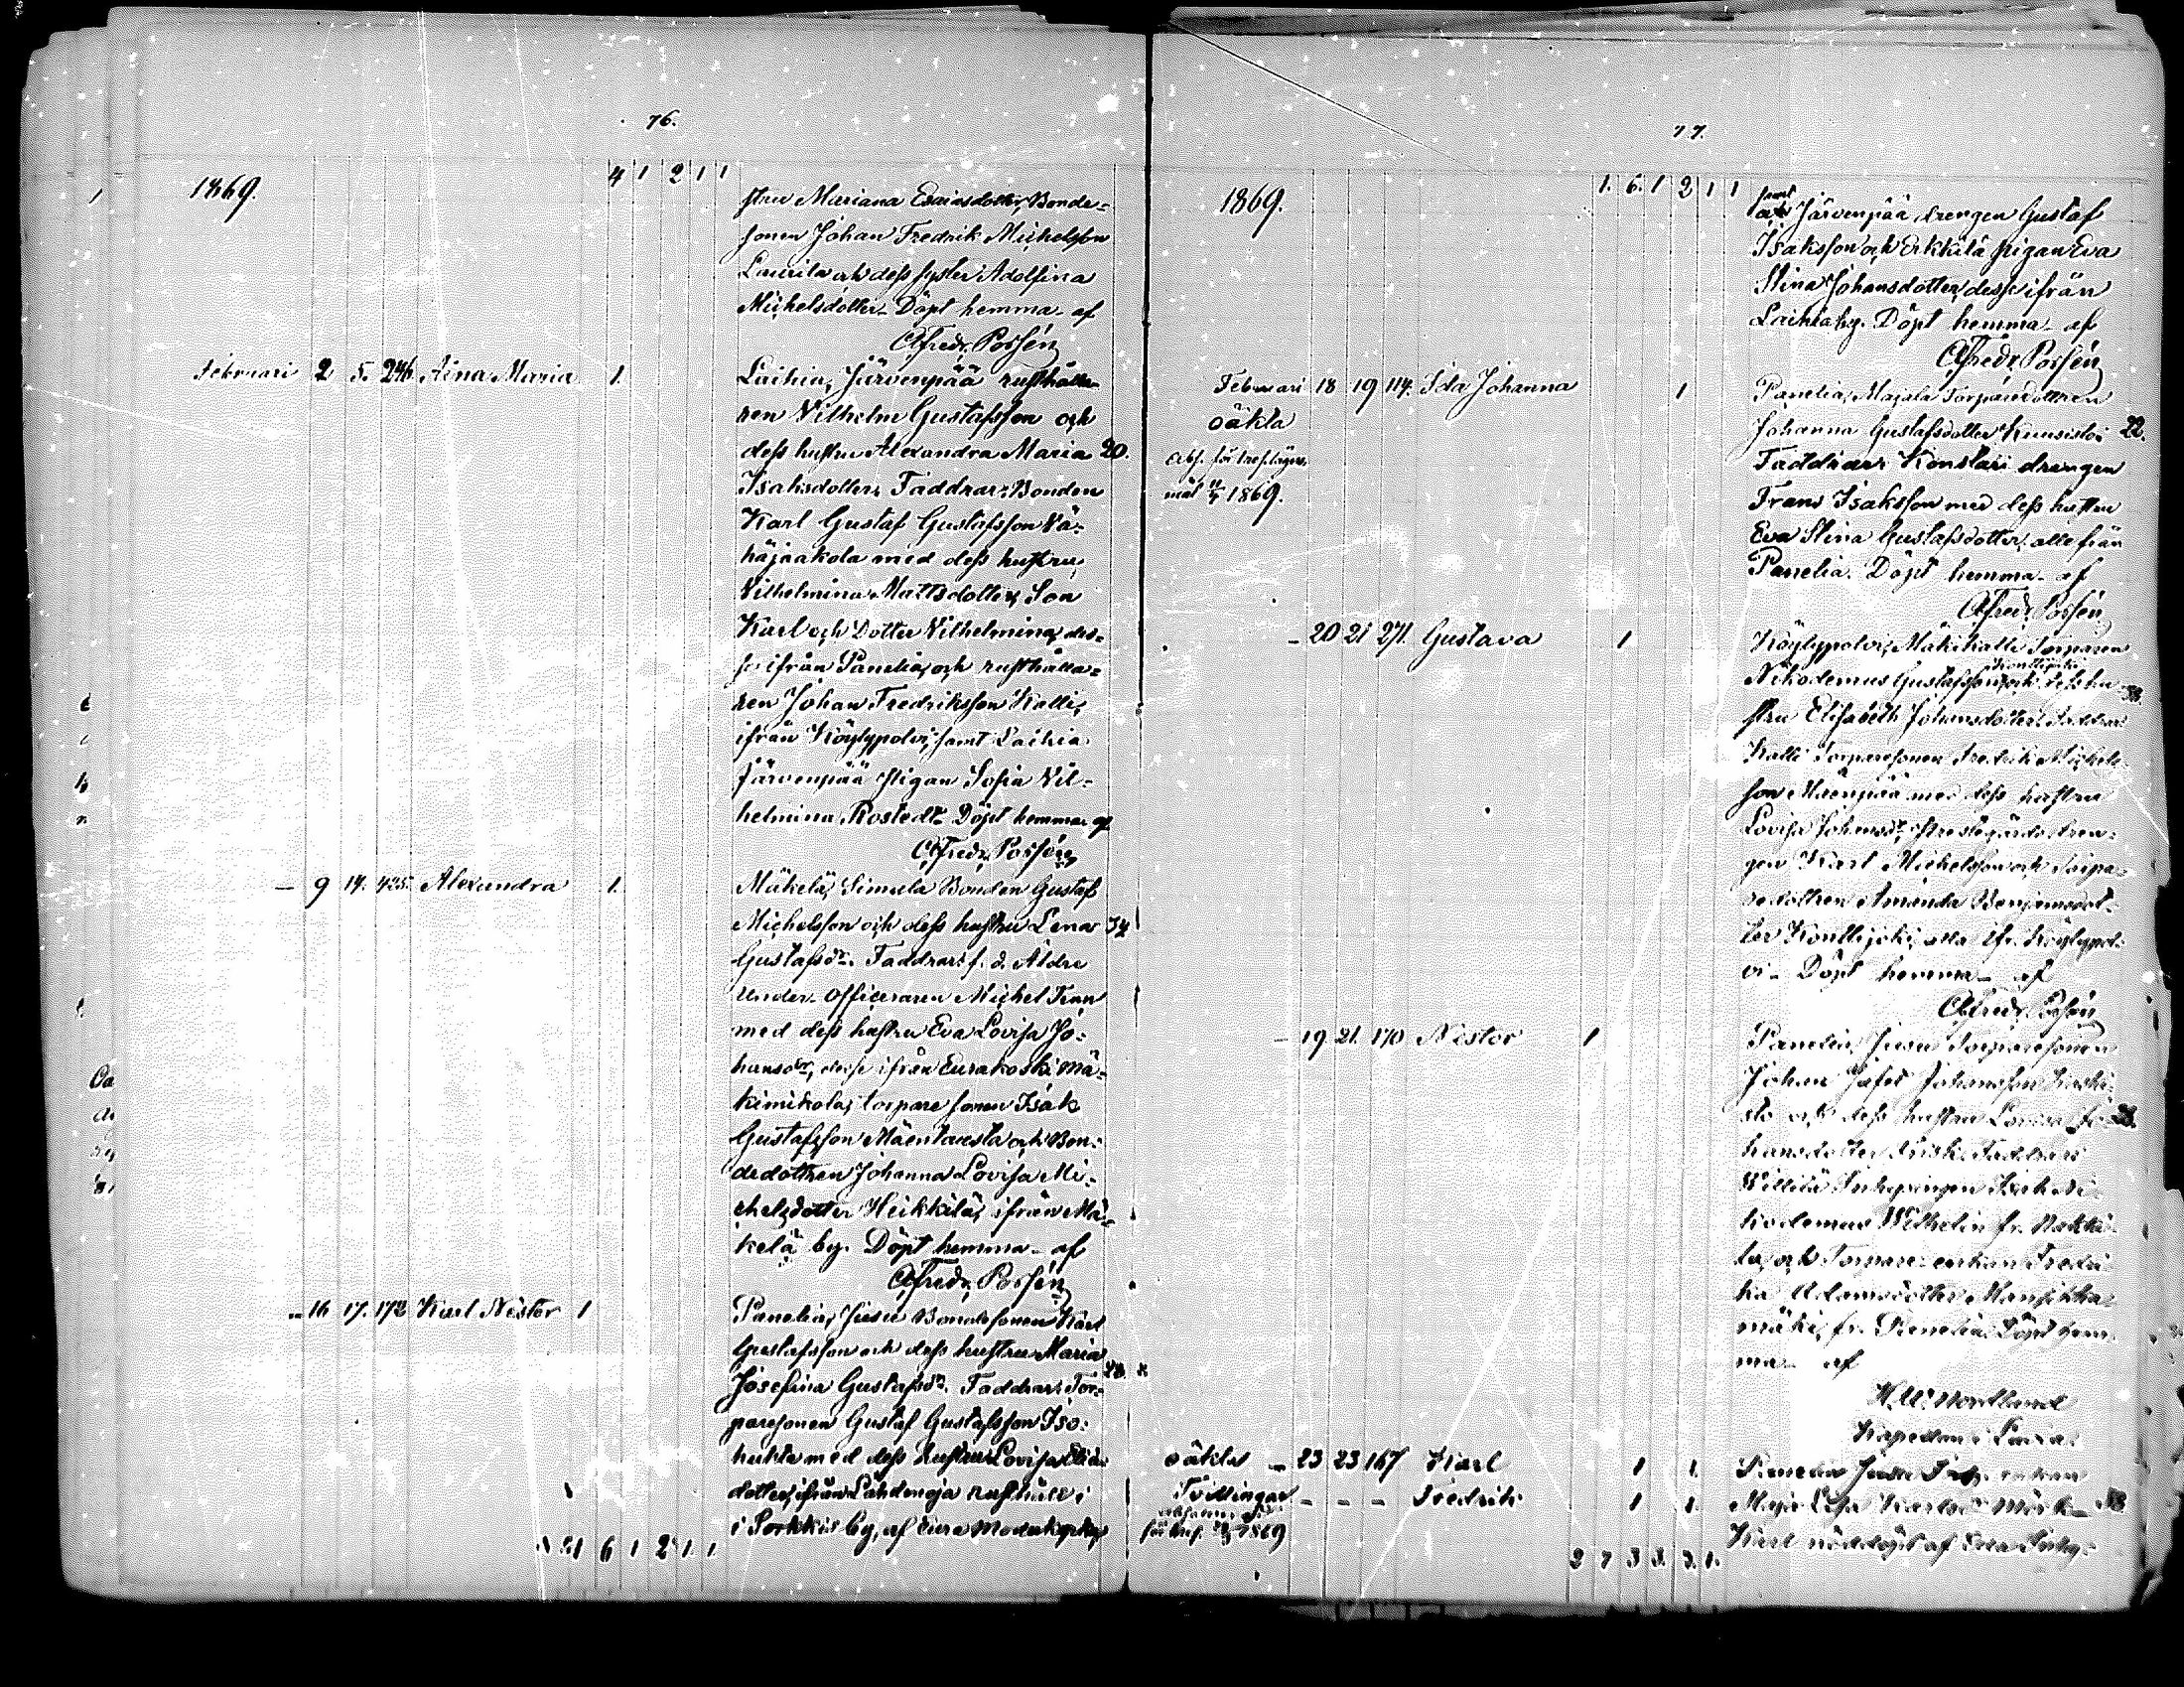 76.
1869.
4 1 2 1 1
stru Mariana Esaiasdotter, Bonde-
sonen Johan Fredrik Michelsson
Laurila och dess syster Adolfina
Michelsdotter. Döpt hemma af
Alfredr. Possén
Februari 2 5. 246 Aina Maria 1.
Laihia, Järvenpää rusthålla-
ren Vilhelm Gustafsson och
dess hustru Alexandra Maria 20.
Isaksdotter, Faddrar: Bonden
Karl Gustaf Gustafsson Vä-
häjaakola med dess hustru
Vilhelmina Mattsdotter, Son
Karl och Dotter Vilhelmina, des-
se ifrån Panelia, och rusthålla-
ren Johan Fredriksson Kalli,
ifrån Köylypolvi, samt Laihia
Järvenpää Pigan Sofia Vil-
helmina Rostedt. Döpt hemma af
Alfredr. Possén
— 9 14. 425. Alexandra 1.
Mäkelä, Simula Bonden Gustaf
Michelsson och dess hustru Lena 34
Gustafsdr. Faddrar: f. d. Äldre
Under-officeraren Michel Tenn
med dess hustru Eva Lovisa Jo-
hansdr, desse ifrån Eurakoski Mä-
kimikola, torpare sonen Isak
Gustafsson Mäentausta och Bon-
dedottren Johanna Lovisa Mi-
chelsdotter Heikkilä, ifrån Mä-
kelä by. Döpt hemma af
Alfredr. Possén
— 16 17. 172 Karl Nestor 1
Panelia, Jusu Bondesonen Karl
Gustafsson och dess hustru Maria
Josefina Gustafsdr. Faddrar: Tor-
paresonen Gustaf Gustafsson Iso-
huhta med dess hustru Lovisa
dotter, ifrån Lähdenoja rusthåll i
i Sorkkis by, af Eura Moderkyrka,
21 6 1 2 1. 1.
77.
1869.
1. 6. 1 2 1 1
samt
Järvenpää drengen Gustaf
Isaksson och Erkkilä pigan Eva
Stina Johansdotter, desse ifrån
Laihia by. Döpt hemma af
Alfredr. Possén
Februari 18 19 114. Ida Johanna 1
oäkta
mål 1869.
Panelia, Majala Torparedottren
Johanna Gustafsdotter Kuusisto. 22.
Faddrar: Konstari drengen
Frans Isaksson med dess hustru
Eva Stina Gustafsdotter, alle från
Panelia. Döpt hemma af
Alfredr. Possén
— 20 21 271. Gustava 1
Köylypolvi, Mäkikalli Torparen
Nikodemus Gustafsson och dess hu-
stru Elisabeth Johansdotter. Faddrar:
Kalli Torparesonen Fredrik Michels-
son Mäenpää med dess hustru
Lovisa Johansdr, Prestegårds dren-
gen Karl Michelsson och Torpa-
redottren Amanda Benjamsdot-
ter Konttijoki, alla ifr. Köylypol-
vi. Döpt hemma af
Alfredr. Possén
— 19. 21. 170 Nestor 1
Panelia, Jusu Torparesonen
Johan Jafet Johansson
sto och dess hustru Lovisa Jo- 28.
hansdotter Faddrar:
Willilä
kodemus Wilhelm fr. Nakki-
la, och Torpare enkan Fredri-
ka Adamsdotter Mansikka-
mäki, fr. Panelia. Döpt hem-
ma af
Nordlund
Kapellan i
oäkta — 23 23 167 Karl 1 1.
Tvillingar — — — Fredrik 1 1.
1869
Panelia Jusu
Maja Lisa 38
Karl nöddöpt af
2 7 3 3. 3. 1.